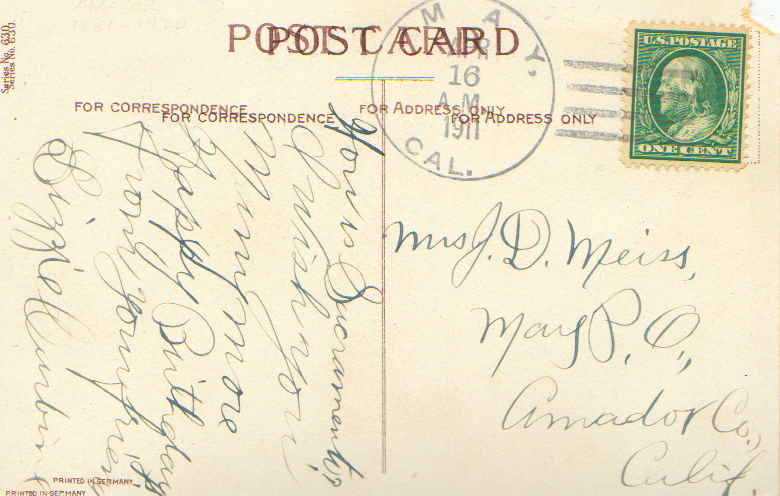 Series No. 630.
Series No. 630.
POST CARD
POST CARD
MAY,
APR
16
A.M.
1911
CAL.
U.S. POSTAGE
ONE CENT
FOR CORRESPONDENCE
FOR ADDRESS ONLY
FOR CORRESPONDENCE
FOR ADDRESS ONLY
How is Sacramento?
I wish you
Many more
Happy Birthdays
From your friend
Lizzie
Mrs J. D. Meiss,
May P. O.,
Amador Co.,
Calif.
PRINTED IN GERMANY
PRINTED IN GERMANY